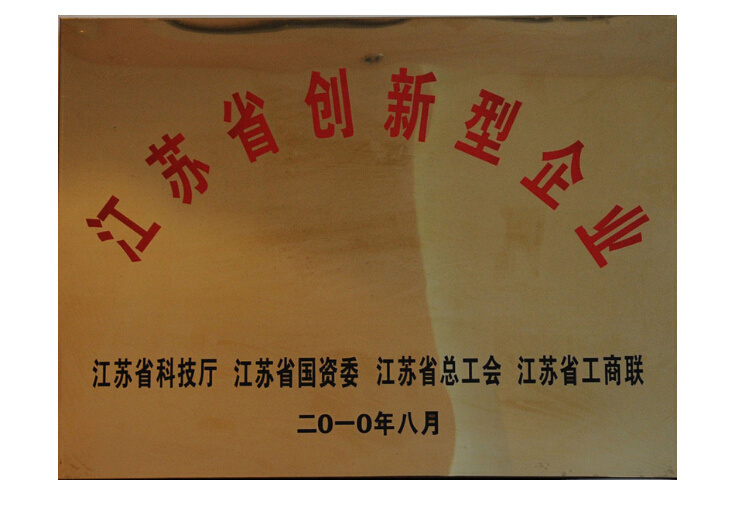 江苏省创新型企业
江苏省科技厅 江苏省国资委 江苏省总工会 江苏省工商联
二0一0年八月